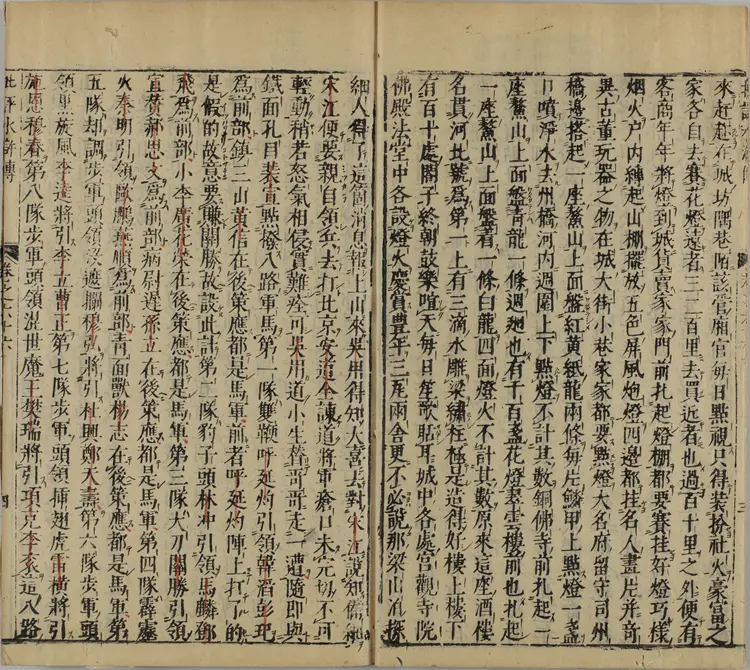 來赶趂在城坊隅巷陌該管廂官每日點視只得裝扮社火豪富之
家各自去賽花燈遠者三二百里去買近者也過百十里之外便有
客商年年將燈到城貨賣家家門前扎起燈棚都要賽挂好燈巧樣
烟火戶內縛起山棚擺放五色屏風炮燈四邊都挂名人畫片并奇
異古董玩器之物在城大街小巷家家都要點燈大名府留守司州
橋邊搭起一座鰲山上面盤紅黃紙龍兩條每片鱗甲上點燈一盞
口噴淨水去州橋河內週圍上下點燈不計其數銅佛寺前扎起一
座鰲山上面盤青龍一條週廻也有千百盞花燈翠雲樓前也扎起
一座鰲山上面盤着一條白龍四面燈火不計其數原來這座酒樓
名貫河北號爲第一上有三滴水雕梁繡柱極是造得好樓上樓下
有百十處閣子終朝鼓樂喧天每日笙歌聒耳城中各處宮觀寺院
佛殿法堂中各設燈火慶賞豐年三瓦兩舍更不必說那梁山泊探
細人得了這箇消息報上山來吳用得知大喜去對宋江說知備細
宋江便要親自領兵去打北京安道全諫道將軍瘡口未完切不可
輕動稍若怒氣相侵實難痊可吳用道小生替哥哥走一遭隨即與
鐵面孔目裴宣點撥八路軍馬第一隊雙鞭呼延灼引領韓滔彭玘
爲前部鎮三山黃信在後策應都是馬軍前者呼延灼陣上打了的
是假的故意要賺關勝故設此計第二隊豹子頭林冲引領馬麟鄧
飛爲前部小李廣花榮在後策應都是馬軍第三隊大刀關勝引領
宣贊郝思文爲前部病尉遲孫立在後策應都是馬軍第四隊霹靂
火秦明引領歐鵬燕順爲前部青面獸楊志在後策應都是馬軍第
五隊却調步軍頭領沒遮攔穆弘將引杜興鄭天壽第六隊步軍頭
領黑旋風李逵將引李立曹正第七隊步軍頭領插翅虎雷橫將引
施恩穆春第八隊步軍頭領混世魔王樊瑞將引項充李袞這八路
批評水滸傳 卷之六十六 四